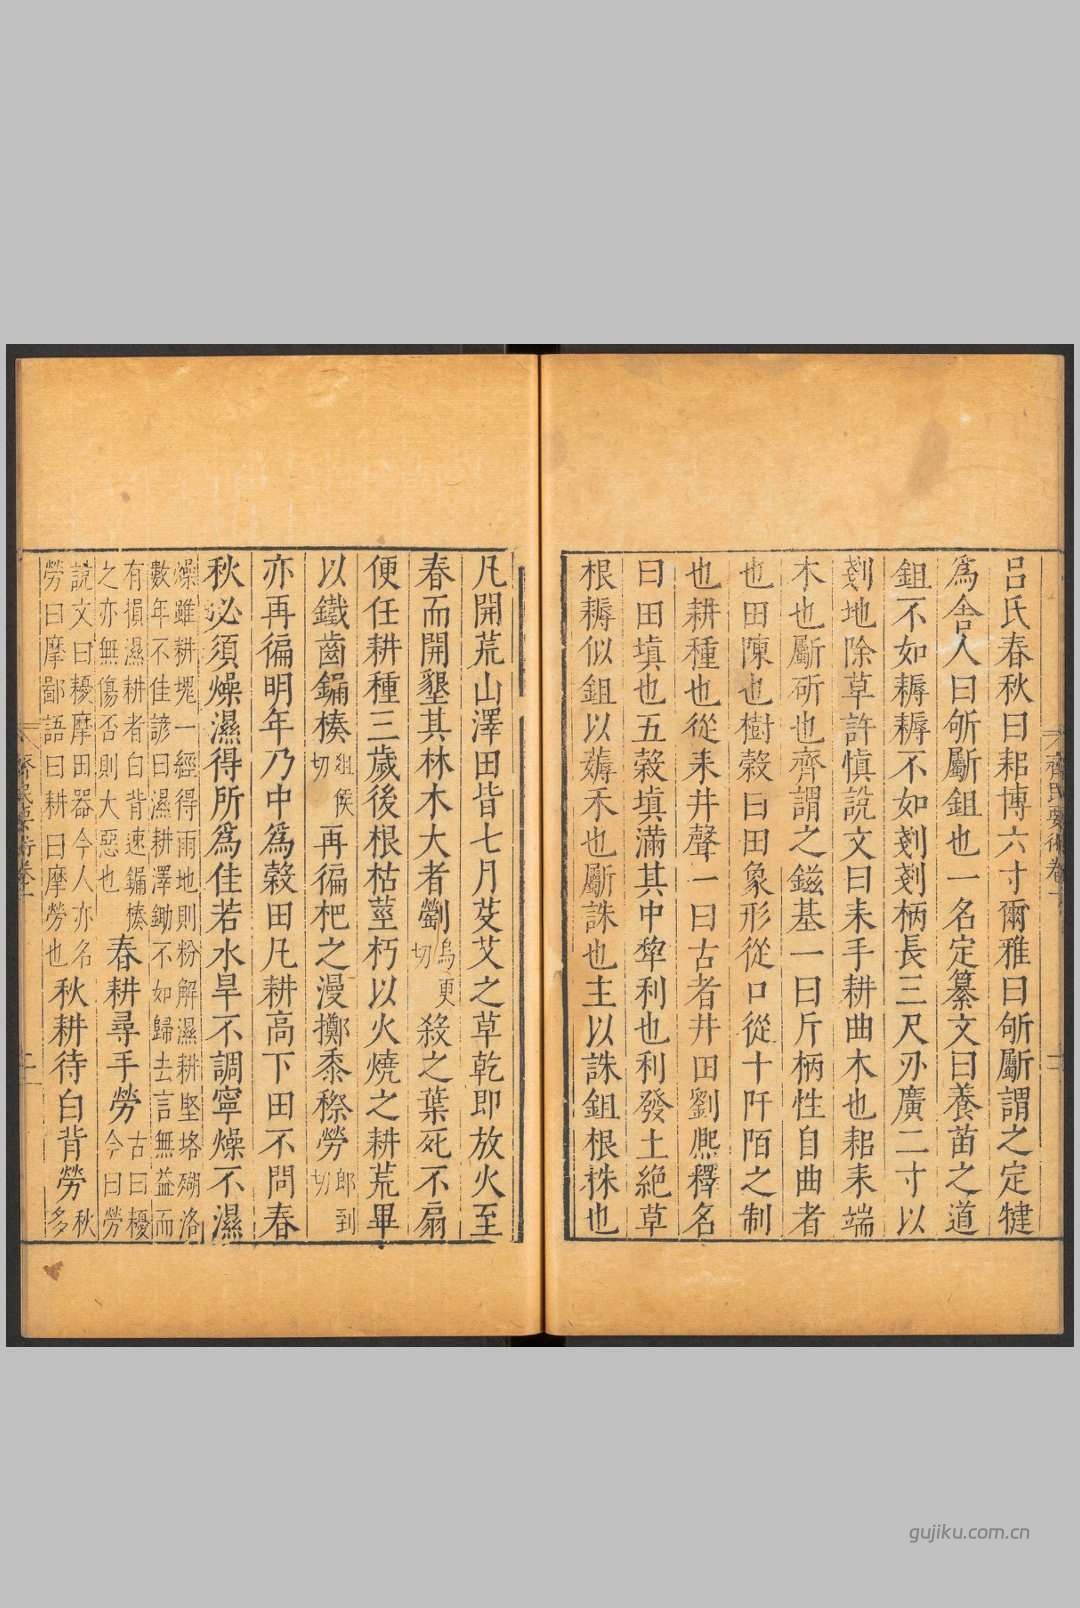 齊民要術卷一
呂氏春秋曰耜博六寸爾雅曰斪斸謂之定犍
爲舍人曰斪斸鉏也一名定纂文曰養苗之道
鉏不如耨耨不如剗剗柄長三尺刃廣二寸以
剗地除草許慎說文曰耒手耕曲木也耜耒端
木也斸斫也齊謂之鎡基一曰斤柄性自曲者
也田陳也樹穀曰田象形從口從十阡陌之制
也耕種也從耒井聲一曰古者井田劉熈釋名
曰田填也五穀填滿其中犂利也利發土絶草
根耨似鉏以薅禾也斸誅也主以誅鉏根株也
凡開荒山澤田皆七月芟艾之草乾即放火至
春而開墾其林木大者㔃烏更切殺之葉死不扇
便任耕種三歲後根枯莖朽以火燒之耕荒畢
以鐵齒𨫒楱俎侯切再徧杷之漫擲黍穄勞郎到切
亦再徧明年乃中爲穀田凡耕高下田不問春
秋必須燥濕得所爲佳若水旱不調寧燥不濕
燥雖耕塊一經得雨地則粉解濕耕堅垎𣸣洛
數年不佳諺曰濕耕澤鋤不如歸去言無益而
有損濕耕者白背速𨫒楱之亦無傷否則大惡也春耕尋手勞古曰耰今曰勞
說文曰耰摩田器今人亦名勞曰摩鄙語曰耕曰摩勞也秋耕待白背勞秋多
齊民要術卷一